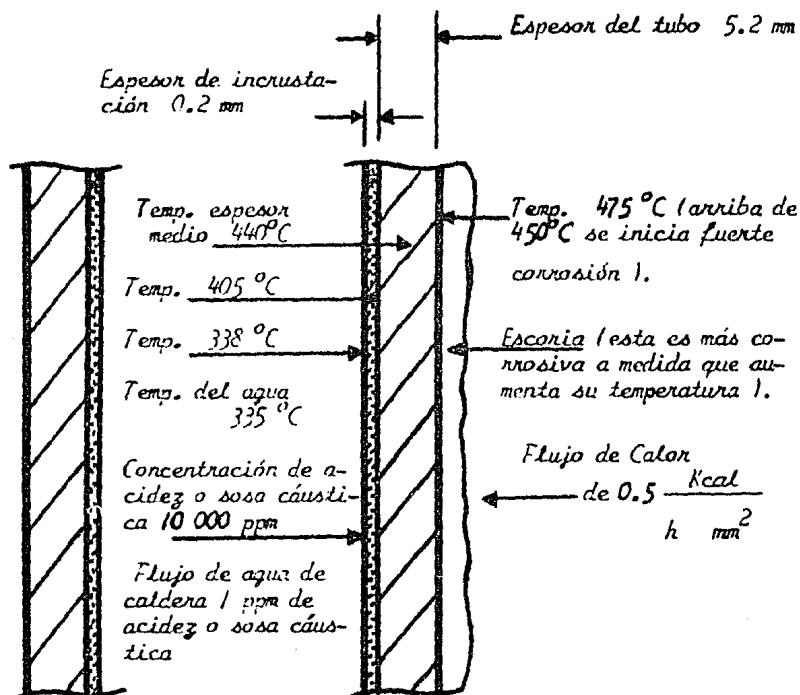 Espesor del tubo 5.2 mm
Espesor de incrusta-
ción 0.2 mm
Temp. espesor
medio 440°C
Temp. 405 °C
Temp. 338 °C
Temp. del agua
335 °C
Concentración de a-
cidez o sosa cáusti-
ca 10 000 ppm
Flujo de agua de
caldera 1 ppm de
acidez o sosa cáus-
tica
Temp. 475 °C (arriba de
450°C se inicia fuerte
corrosión ).
Escoria (esta es más co-
rrosiva a medida que au-
menta su temperatura ).
Flujo de Calor
de 0.5 Kcal
h mm²